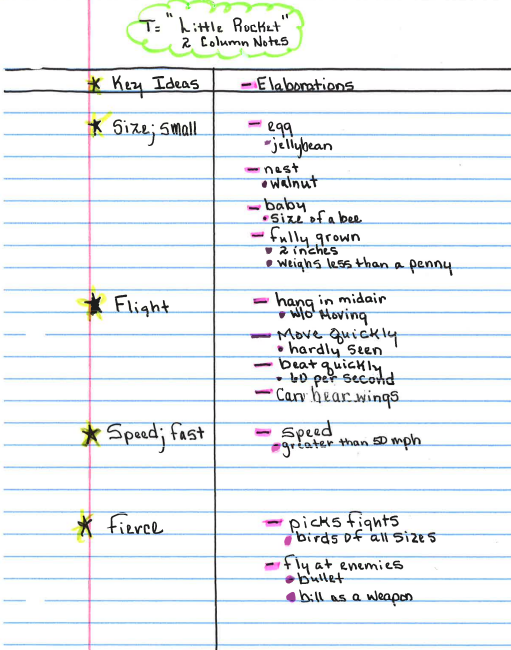 T= "Little Rocket"
2 Column Notes
Key Ideas - Elaborations
Size; small - egg
jellybean
- nest
walnut
- baby
size of a bee
- fully grown
2 inches
weighs less than a penny
Flight - hang in midair
w/o Moving
- Move Quickly
hardly seen
- beat quickly
60 per second
- Can hear wings
Speed; fast - Speed
greater than 50 mph
fierce - picks fights
birds of all sizes
- fly at enemies
bullet
bill as a weapon